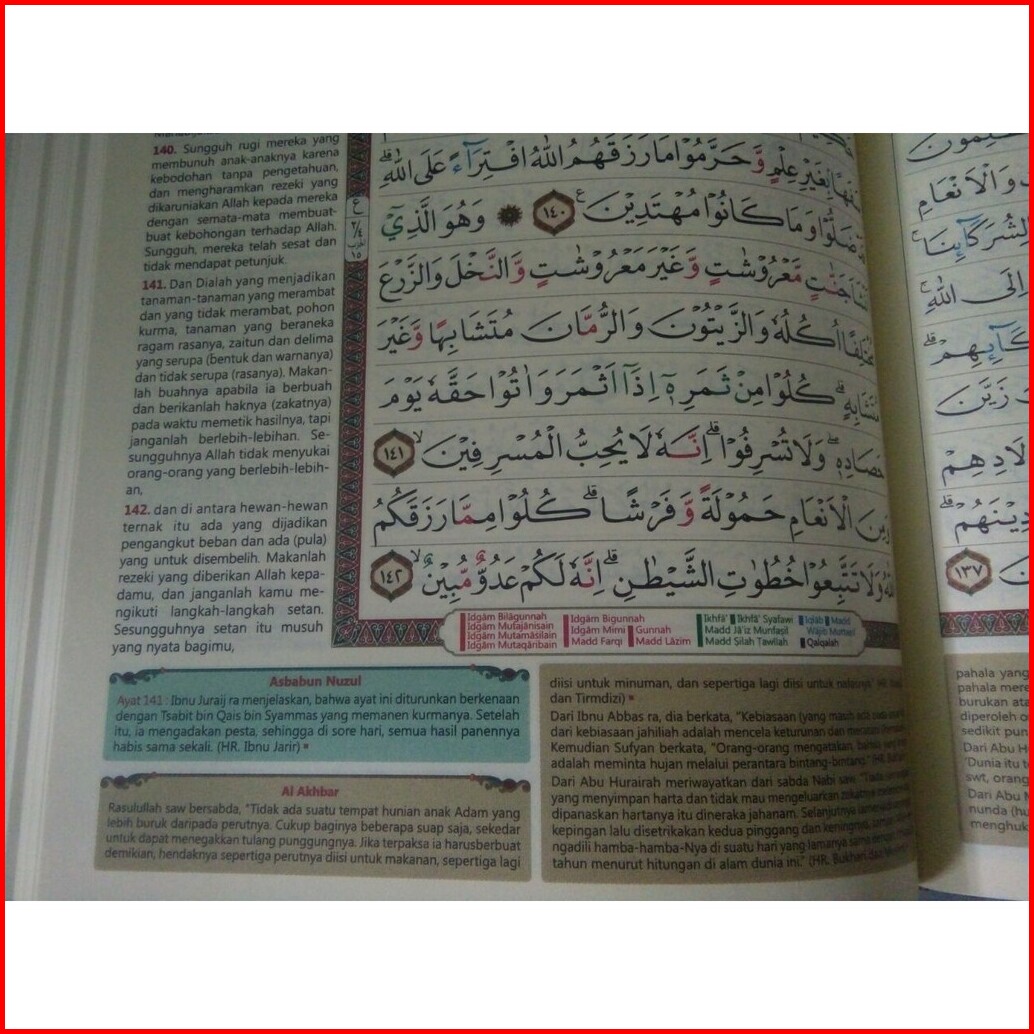 140. Sungguh rugi mereka yang
membunuh anak-anaknya karena
kebodohan tanpa pengetahuan,
dan mengharamkan rezeki yang
dikaruniakan Allah kepada mereka
dengan semata-mata membuat-
buat kebohongan terhadap Allah.
Sungguh, mereka telah sesat dan
tidak mendapat petunjuk.
141. Dan Dialah yang menjadikan
tanaman-tanaman yang merambat
dan yang tidak merambat, pohon
kurma, tanaman yang beraneka
ragam rasanya, zaitun dan delima
yang serupa (bentuk dan warnanya)
dan tidak serupa (rasanya). Makan-
lah buahnya apabila ia berbuah
dan berikanlah haknya (zakatnya)
pada waktu memetik hasilnya, tapi
janganlah berlebih-lebihan. Se-
sungguhnya Allah tidak menyukai
orang-orang yang berlebih-lebih-
an,
142. dan di antara hewan-hewan
ternak itu ada yang dijadikan
pengangkut beban dan ada (pula)
yang untuk disembelih. Makanlah
rezeki yang diberikan Allah kepa-
damu, dan janganlah kamu me-
ngikuti langkah-langkah setan.
Sesungguhnya setan itu musuh
yang nyata bagimu,
بِغَيْرِ عِلْمٍ وَّحَرَّمُوْا مَا رَزَقَهُمُ اللّٰهُ افْتِرَاۤءً عَلَى اللّٰهِ ۗ
ضَلُّوْا وَمَا كَانُوْا مُهْتَدِيْنَ ۝١٤٠ ۞ وَهُوَ الَّذِيْٓ
جَنّٰتٍ مَّعْرُوْشٰتٍ وَّغَيْرَ مَعْرُوْشٰتٍ وَّالنَّخْلَ وَالزَّرْعَ
مُخْتَلِفًا اُكُلُهٗ وَالزَّيْتُوْنَ وَالرُّمَّانَ مُتَشَابِهًا وَّغَيْرَ
مُتَشَابِهٍ ۗ كُلُوْا مِنْ ثَمَرِهٖٓ اِذَآ اَثْمَرَ وَاٰتُوْا حَقَّهٗ يَوْمَ
حَصَادِهٖ ۖ وَلَا تُسْرِفُوْا ۗ اِنَّهٗ لَا يُحِبُّ الْمُسْرِفِيْنَ ۙ ۝١٤١
وَمِنَ الْاَنْعَامِ حَمُوْلَةً وَّفَرْشًا ۗ كُلُوْا مِمَّا رَزَقَكُمُ
اللّٰهُ وَلَا تَتَّبِعُوْا خُطُوٰتِ الشَّيْطٰنِ ۗ اِنَّهٗ لَكُمْ عَدُوٌّ مُّبِيْنٌ ۙ ۝١٤٢
Idgām Bilāgunnah
Idgām Mutajānisain
Idgām Mutamāsilain
Idgām Mutaqāribain
Idgām Bigunnah
Idgām Mimi Gunnah
Madd Farqi Madd Lāzim
Ikhfā' Ikhfā' Syafawi
Madd Jā'iz Munfaṣil
Madd Ṣilah Ṭawīlah
Iqlāb Madd
Wājib Muttaṣil
Qalqalah
Asbabun Nuzul
Ayat 141 : Ibnu Juraij ra menjelaskan, bahwa ayat ini diturunkan berkenaan
dengan Tsabit bin Qais bin Syammas yang memanen kurmanya. Setelah
itu, ia mengadakan pesta, sehingga di sore hari, semua hasil panennya
habis sama sekali. (HR. Ibnu Jarir)
Al Akhbar
Rasulullah saw bersabda, "Tidak ada suatu tempat hunian anak Adam yang
lebih buruk daripada perutnya. Cukup baginya beberapa suap saja, sekedar
untuk dapat menegakkan tulang punggungnya. Jika terpaksa ia harusberbuat
demikian, hendaknya sepertiga perutnya diisi untuk makanan, sepertiga lagi
diisi untuk minuman, dan sepertiga lagi diisi untuk nafasnya" (HR.
dan Tirmdizi)
Dari Ibnu Abbas ra, dia berkata, "Kebiasaan (yang masih ada pada
dari kebiasaan jahiliah adalah mencela keturunan dan
Kemudian Sufyan berkata, "Orang-orang mengatakan, bahwa yang
adalah meminta hujan melalui perantara bintang-bintang." (HR.
Dari Abu Hurairah meriwayatkan dari sabda Nabi saw, "Tiada
yang menyimpan harta dan tidak mau mengeluarkan zakatnya
dipanaskan hartanya itu dineraka jahanam. Selanjutnya
kepingan lalu disetrikakan kedua pinggang dan keningnya,
ngadili hamba-hamba-Nya di suatu hari yang lamanya sama dengan
tahun menurut hitungan di alam dunia ini." (HR. Bukhari dan
وَالْاَنْعَامِ
اِلَى اللّٰهِ
زَيَّنَ
١٣٧
pahala yang
pahala mere
burukan ata
diperoleh o
sedikit pun
Dari Abu H
"Dunia itu t
swt, orang
Dari Abu M
nunda (hu
menghuk